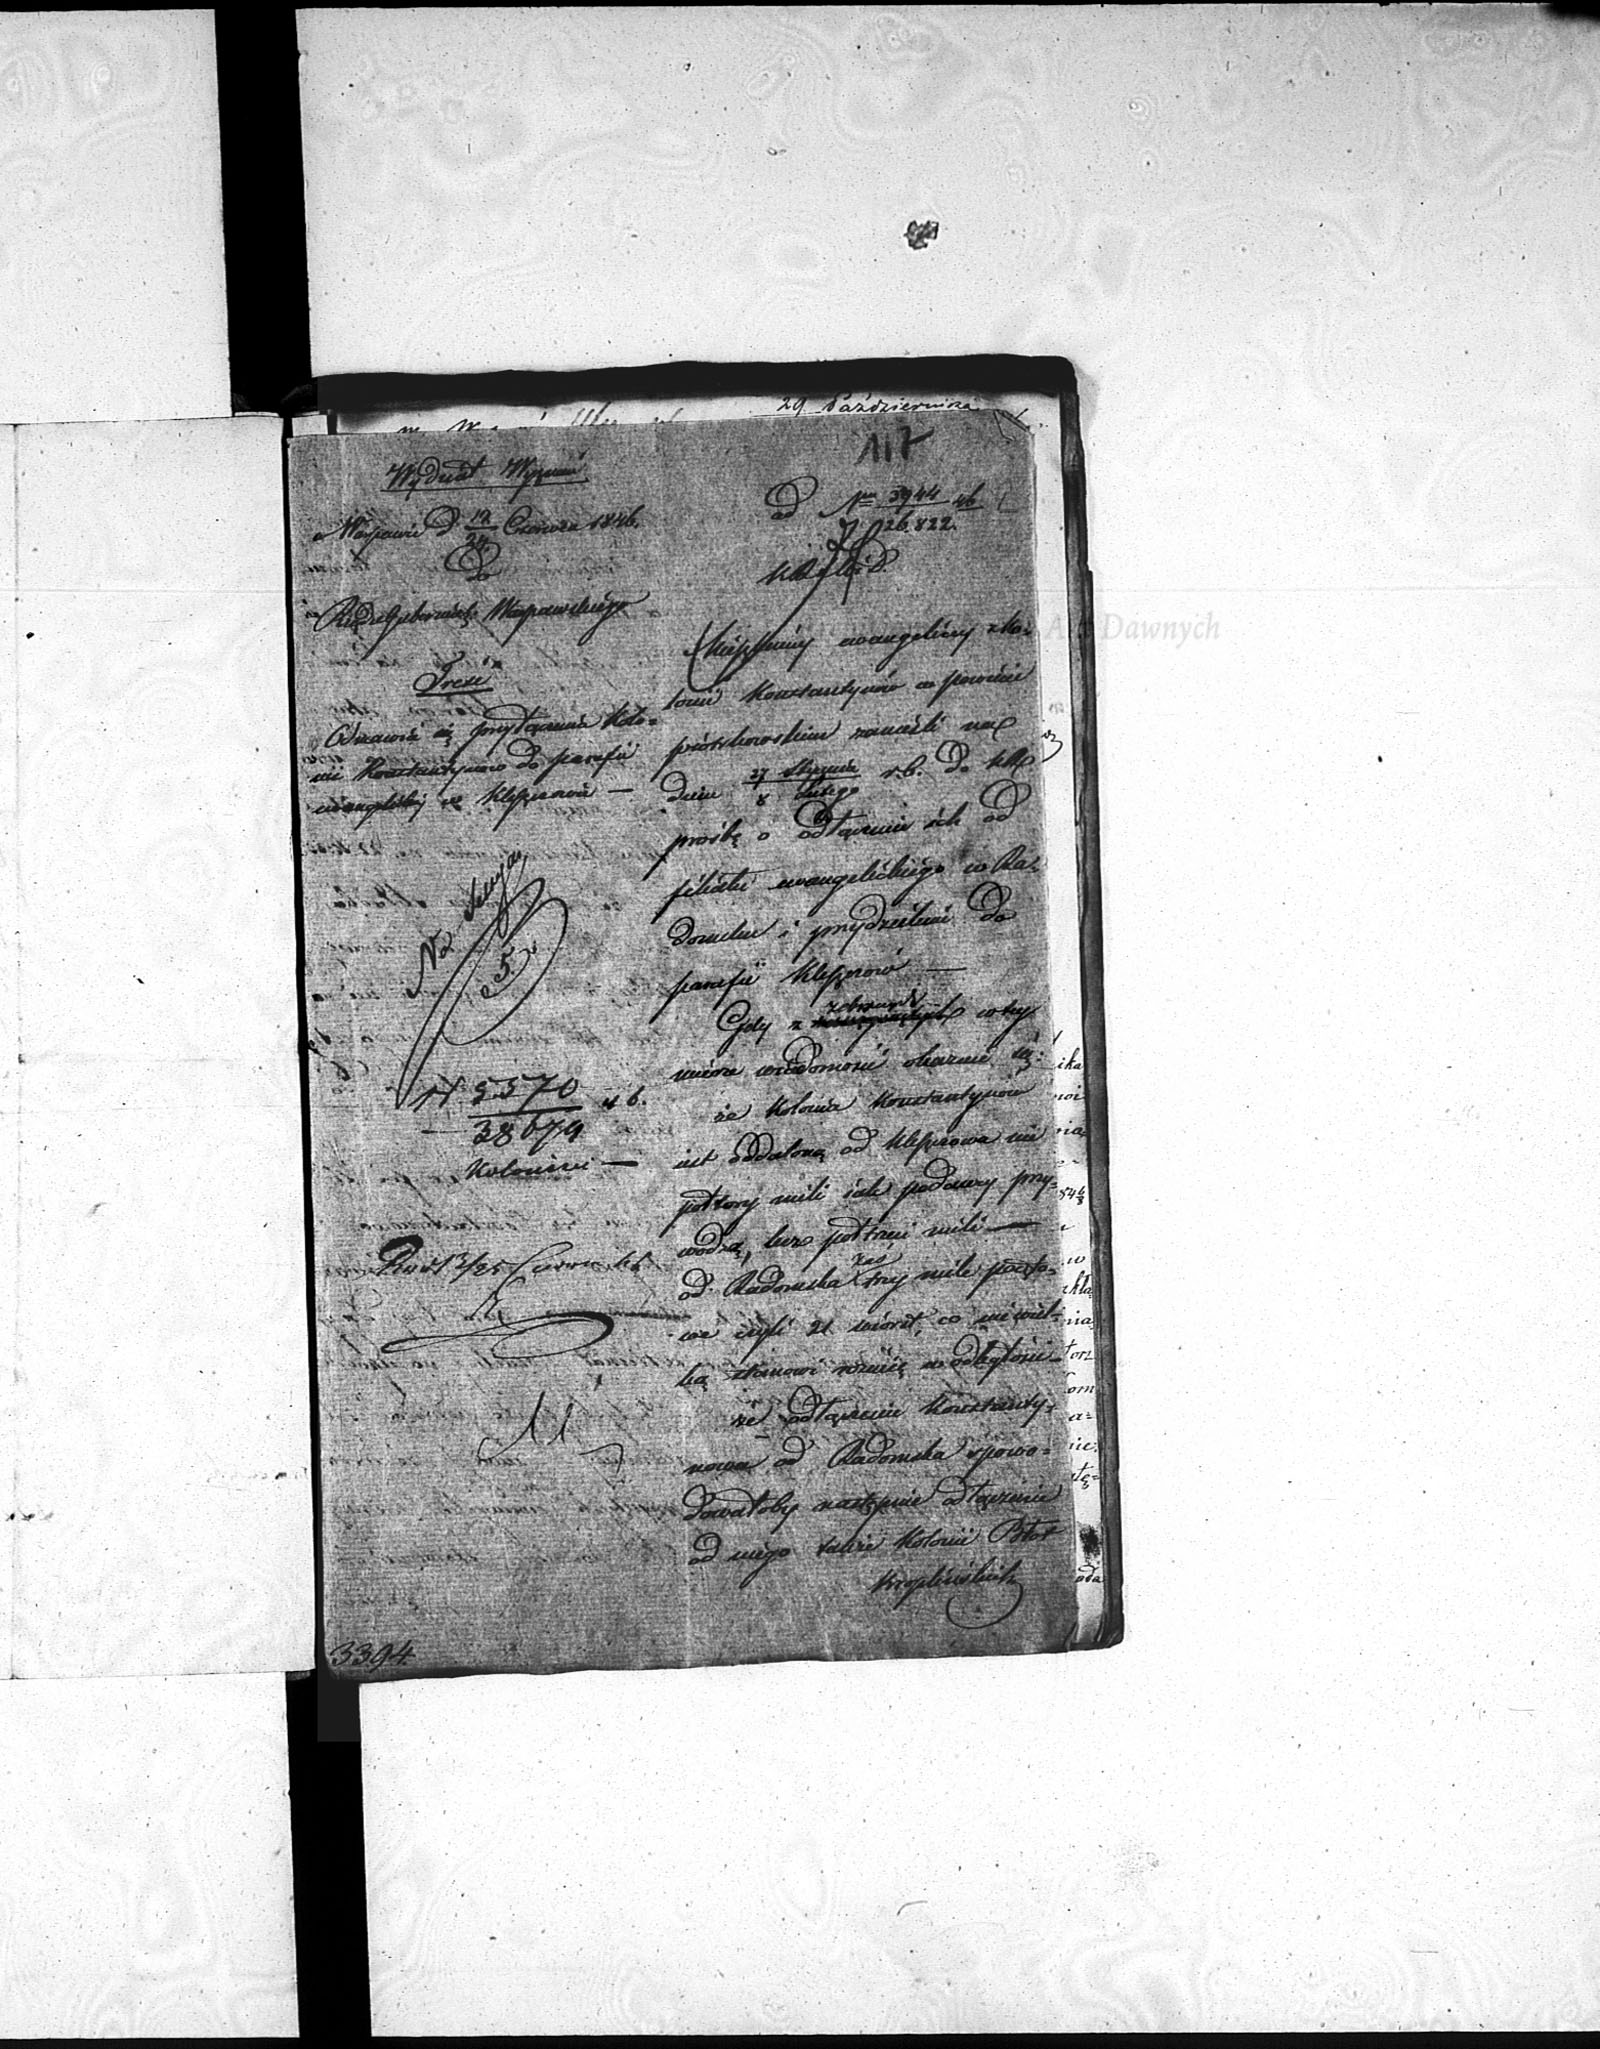 29 Października
117
Wydział Wyznań
w Warszawie D. 12/24 Czerwca 1846.
Do
Rządu Gubernial. Warszawskiego
Treść
Odmawia się przyłączenia Kolo=
nii Konstantynów do parafii
ewangelickiej w Kleszczowie —
No
5.
N 5570 46.
38679
Koloniści —
13/25 Czerwca
3394
ad Nrm 3944 46
26.822.
Mieszkańcy ewangeliccy z ko=
lonii Konstantynów w powiecie
piotrkowskim zanieśli
dniu 27 Stycznia / 8 Lutego r. b. do KR
prośbę o odłączenie ich od
filiału ewangelickiego w Ra=
domsku i przydzielenie do
parafii Kleszczów —
Gdy z zebranych w tej
mierze wiadomości okazuie się:
że Kolonia Konstantynów
iest oddaloną od Kleszczowa nie
półtory mili iak podawcy przy=
wodzą, lecz półtrzeci mili —
od Radomska zaś trzy mile poczto=
we czyli 21 wiorst, co niewiel=
ką stanowi różnicę w odległości
że odłączenie Konstanty=
nowa od Radomska spowo=
dowałoby następnie odłączenie
od niego także Kolonii Błot
Kroplińskich
Dawnych